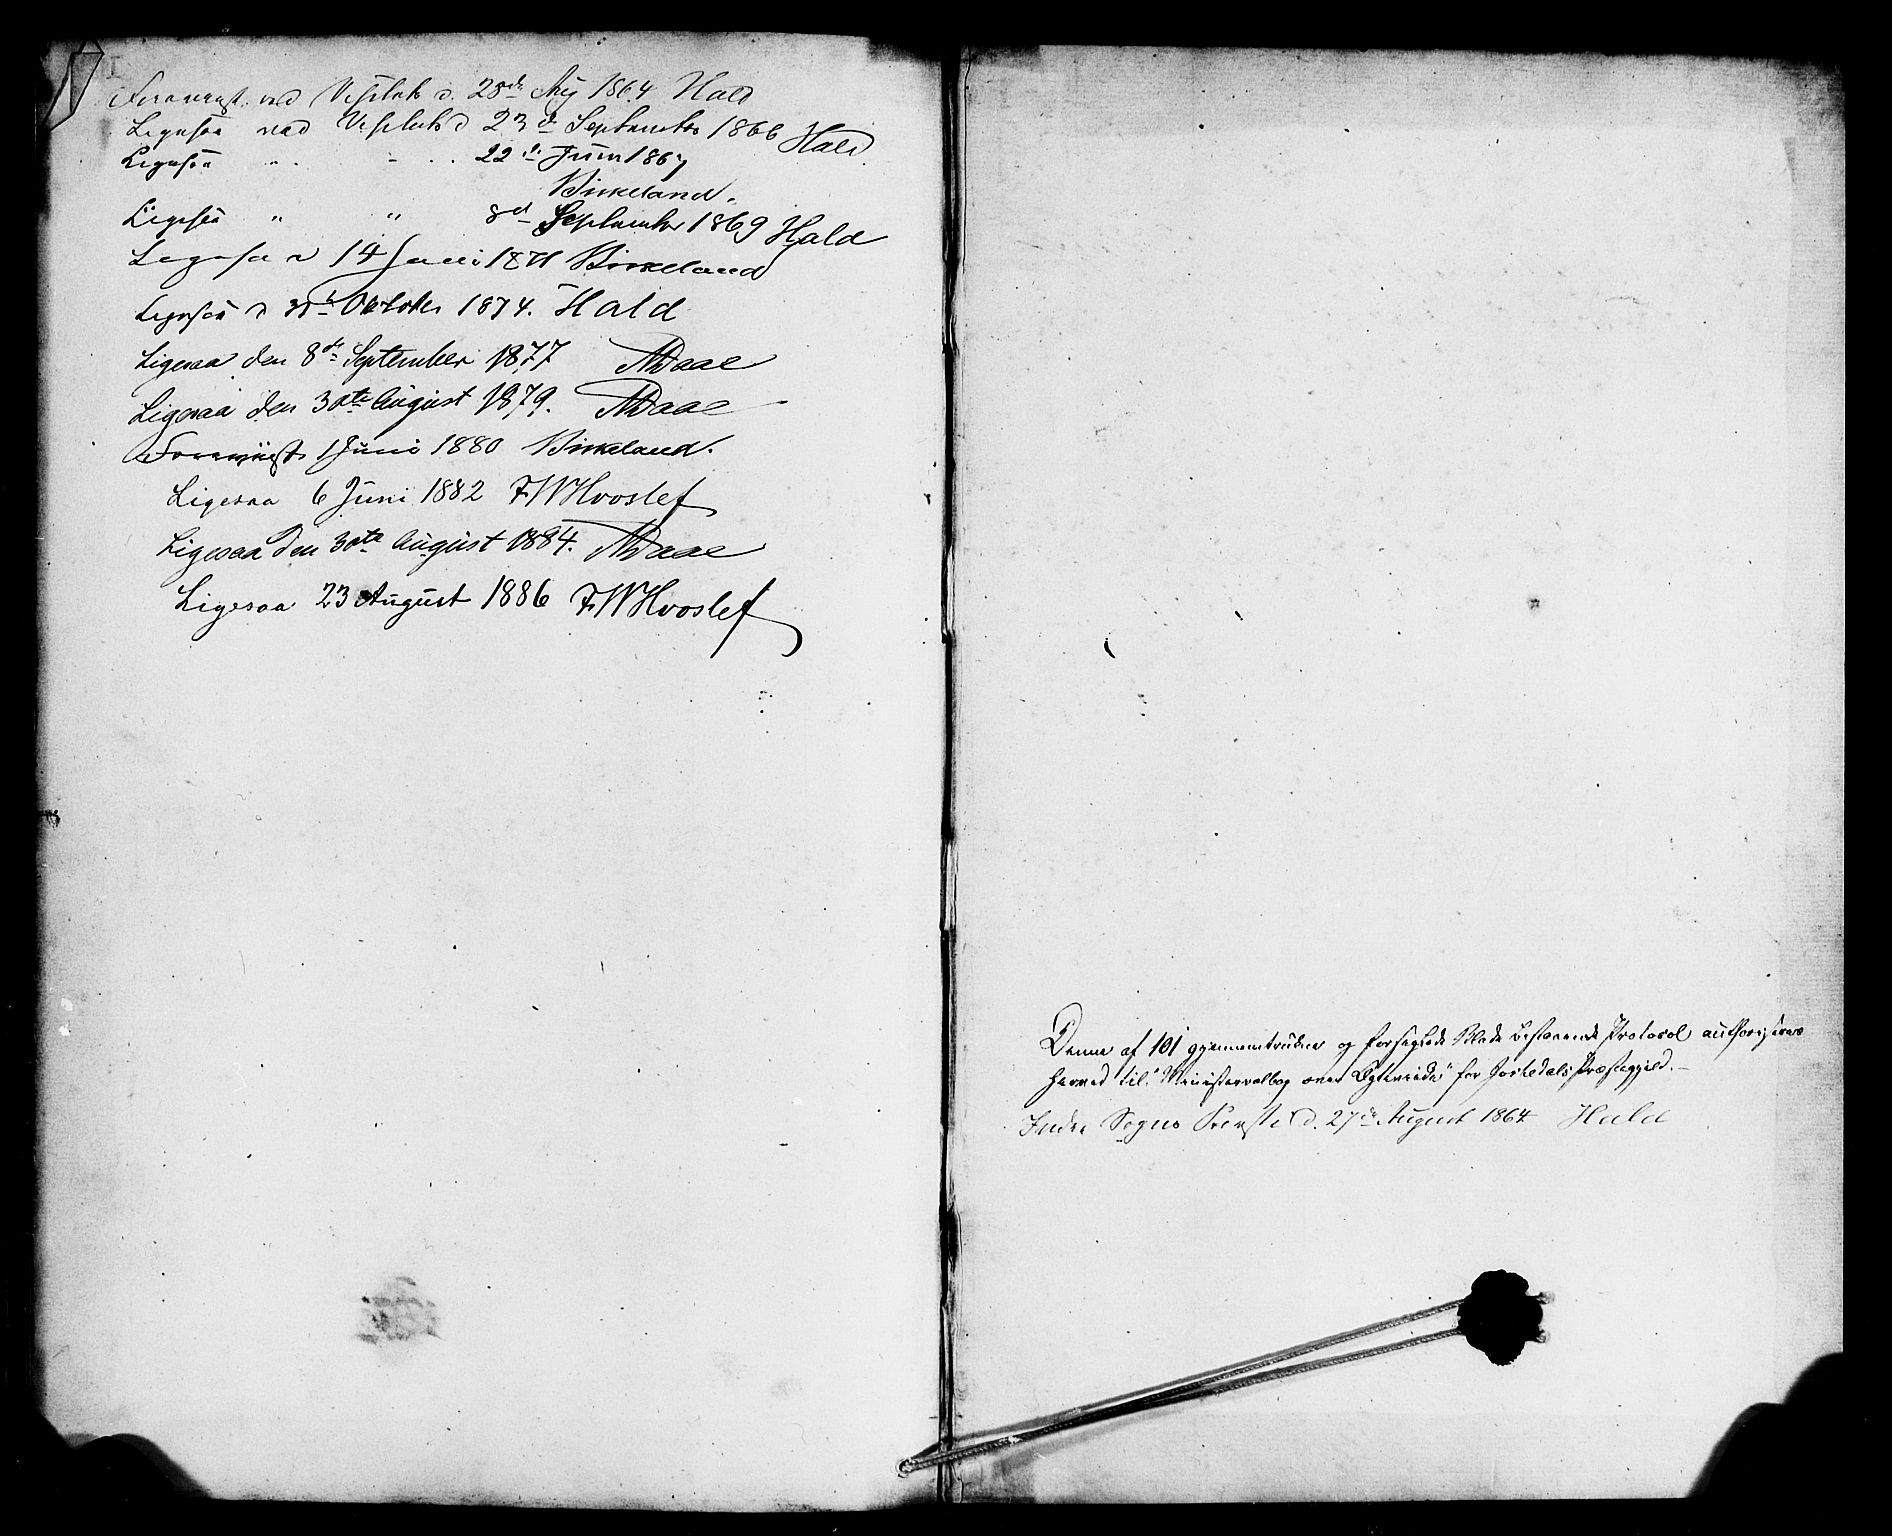 Foreviist ved Visitats d. 28de Aug 1864 Hald
Ligesaa ved Visitats d 23de September 1866 Hald.
Ligesaa " - " 22de Juni 1867
Birkeland.
Ligesaa " " 8de September 1869 Hald
Ligesaa 14 Juni 1871 Birkeland
Ligesaa d Oktober 1874. Hald
Ligesaa den 8de September 1877 Daae
Ligesaa den 30te August 1879. Daae
Foreviist 1 Juni 1880 Birkeland.
Ligesaa 6 Juni 1882 F.W Hvoslef
Ligesaa den 30te August 1884. Daae
Ligesaa 23 August 1886 F.W Hvoslef
Denne af 101 gjennemtrukne og forseglede Blade bestaaende Protocol authoriseres
herved til "Ministerialbog over Ægteviede" for Jostedals Præstegjeld.-
Indre Sogns Provsti d. 27de August 1864 Hald